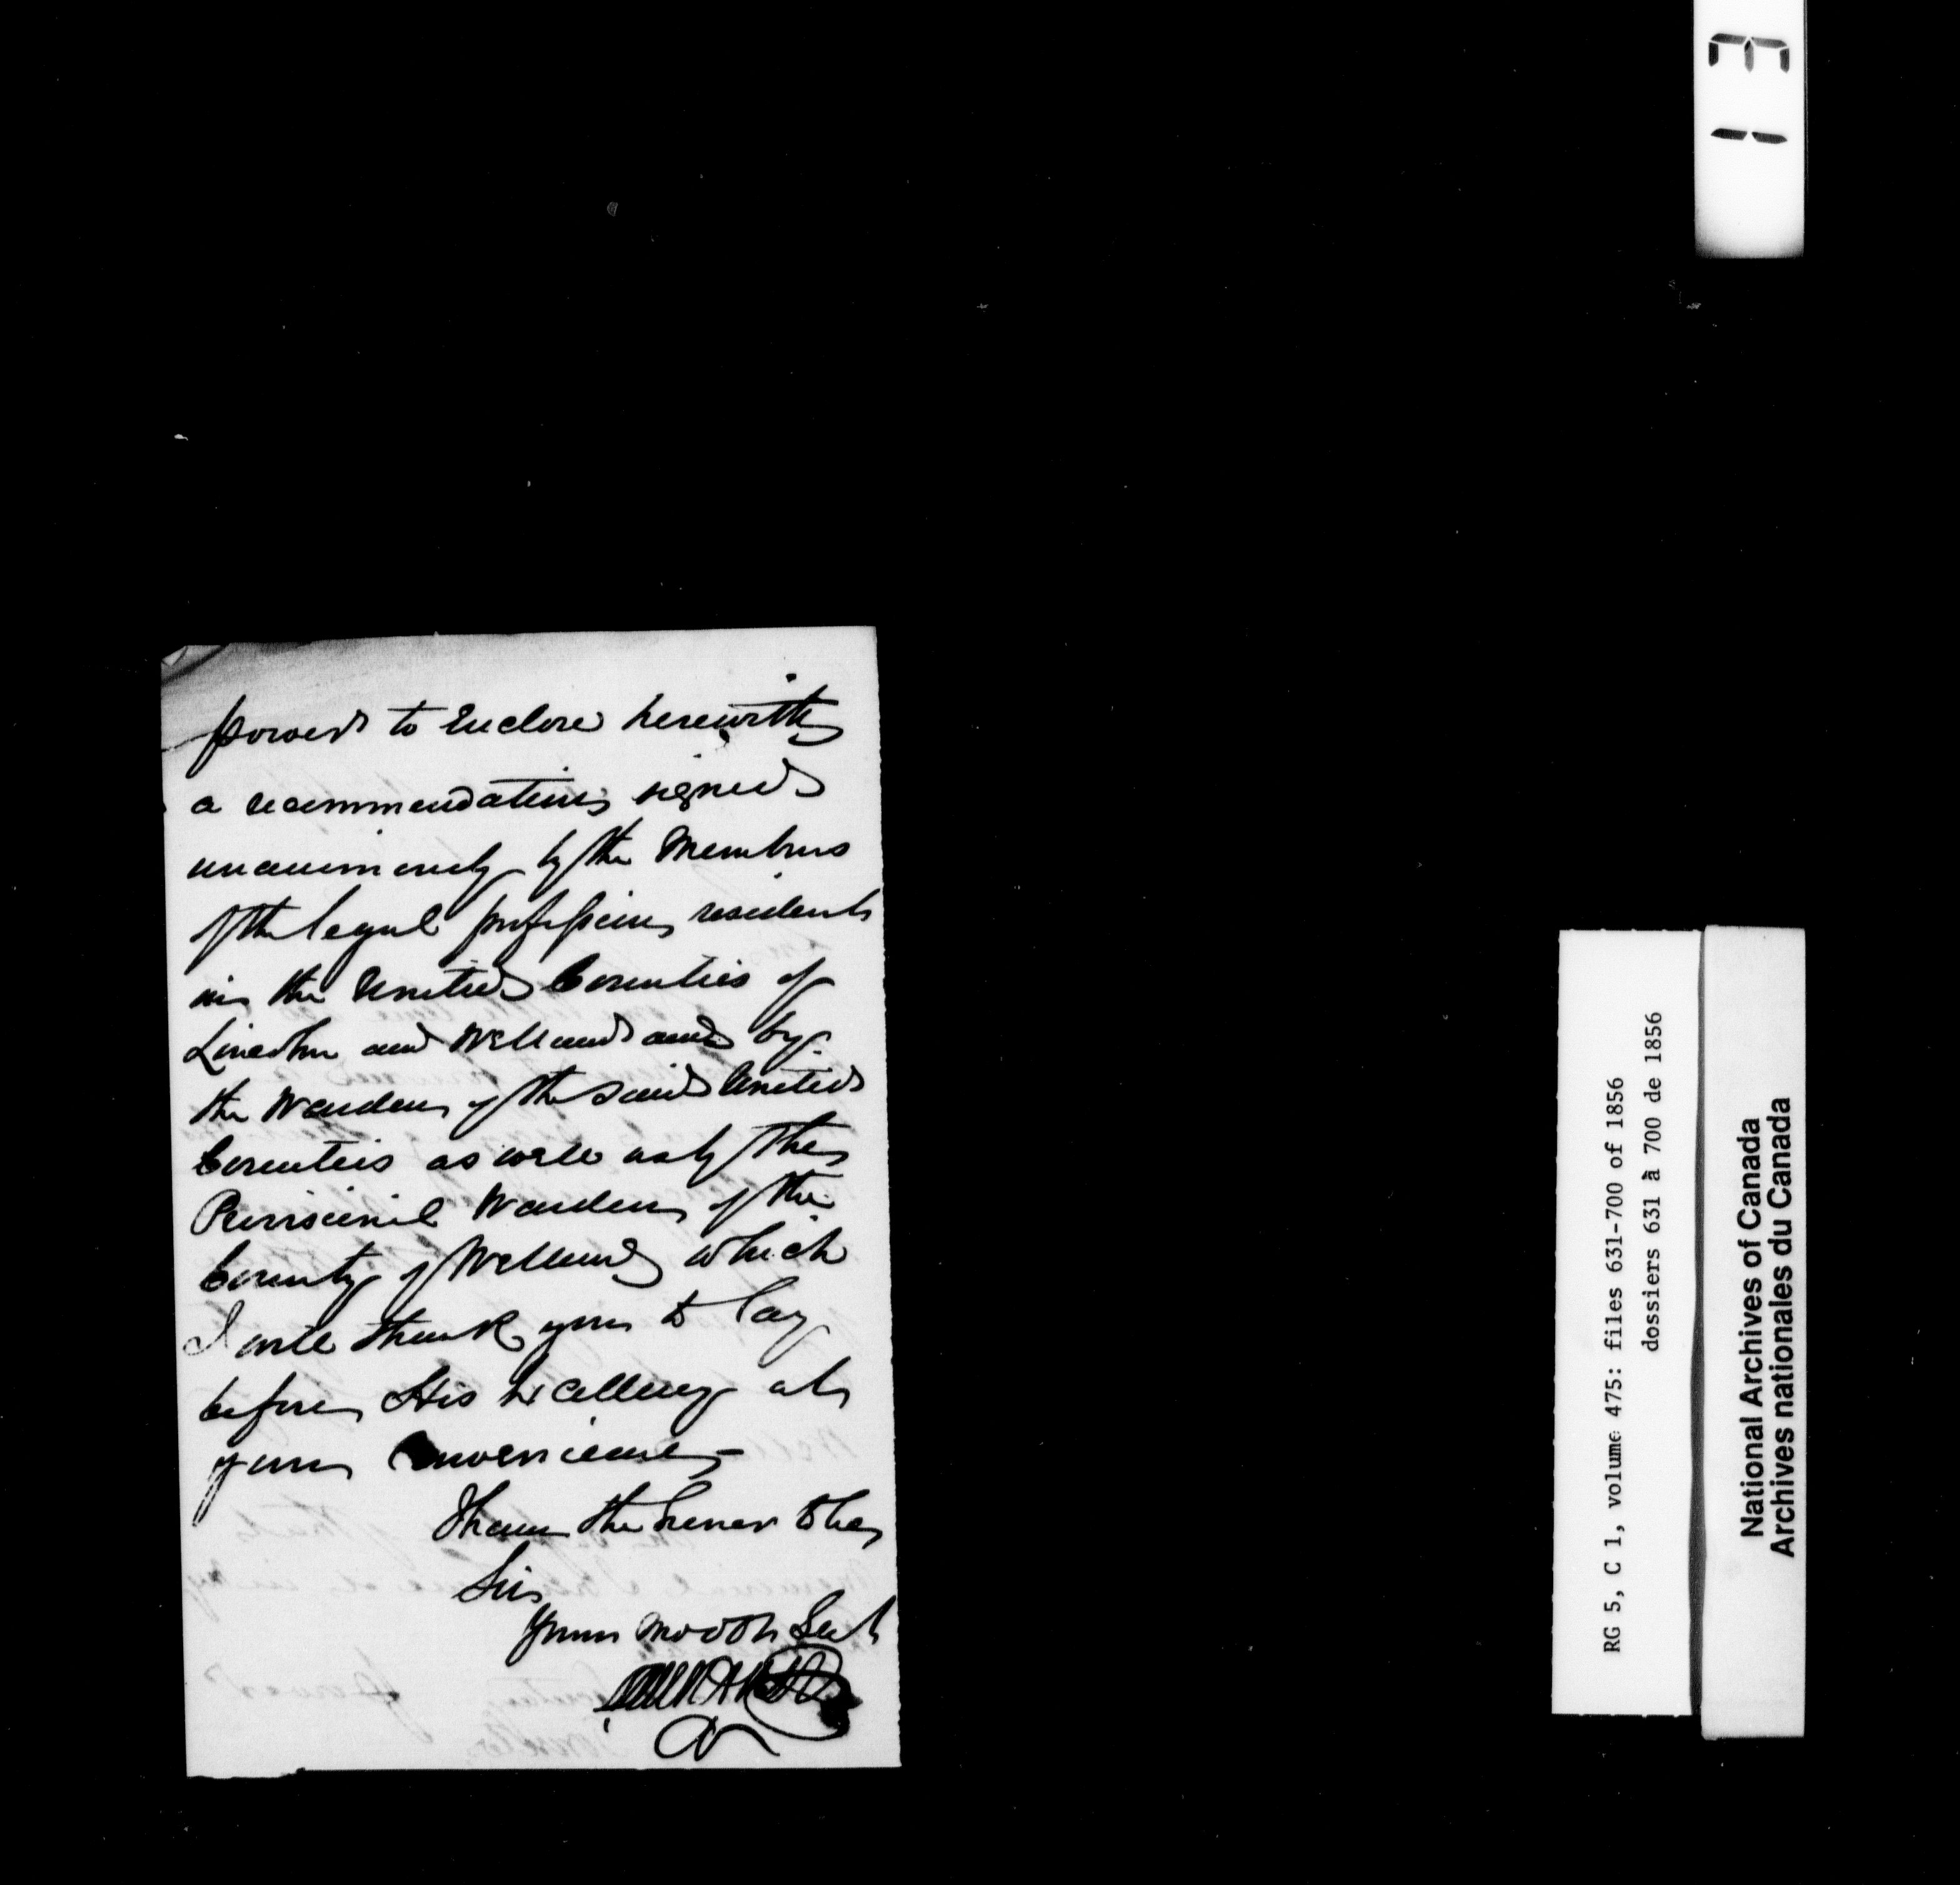 forward to Enclose herewith
a recommendation signed
unanimously by the Members
of the legal profession resident
in the United Counties of
Lincoln and Welland and by
the Warden of the said United
Counties as well as by the
Provisional Warden of the
County of Welland which
I will thank you to lay
before His Excellency at
your Convenience –
I have the honor to be
Sir
Your mo obt Servt
13
RG 5, C 1, volume 475: files 631-700 of 1856
dossiers 631 à 700 de 1856
National Archives of Canada
Archives nationales du Canada